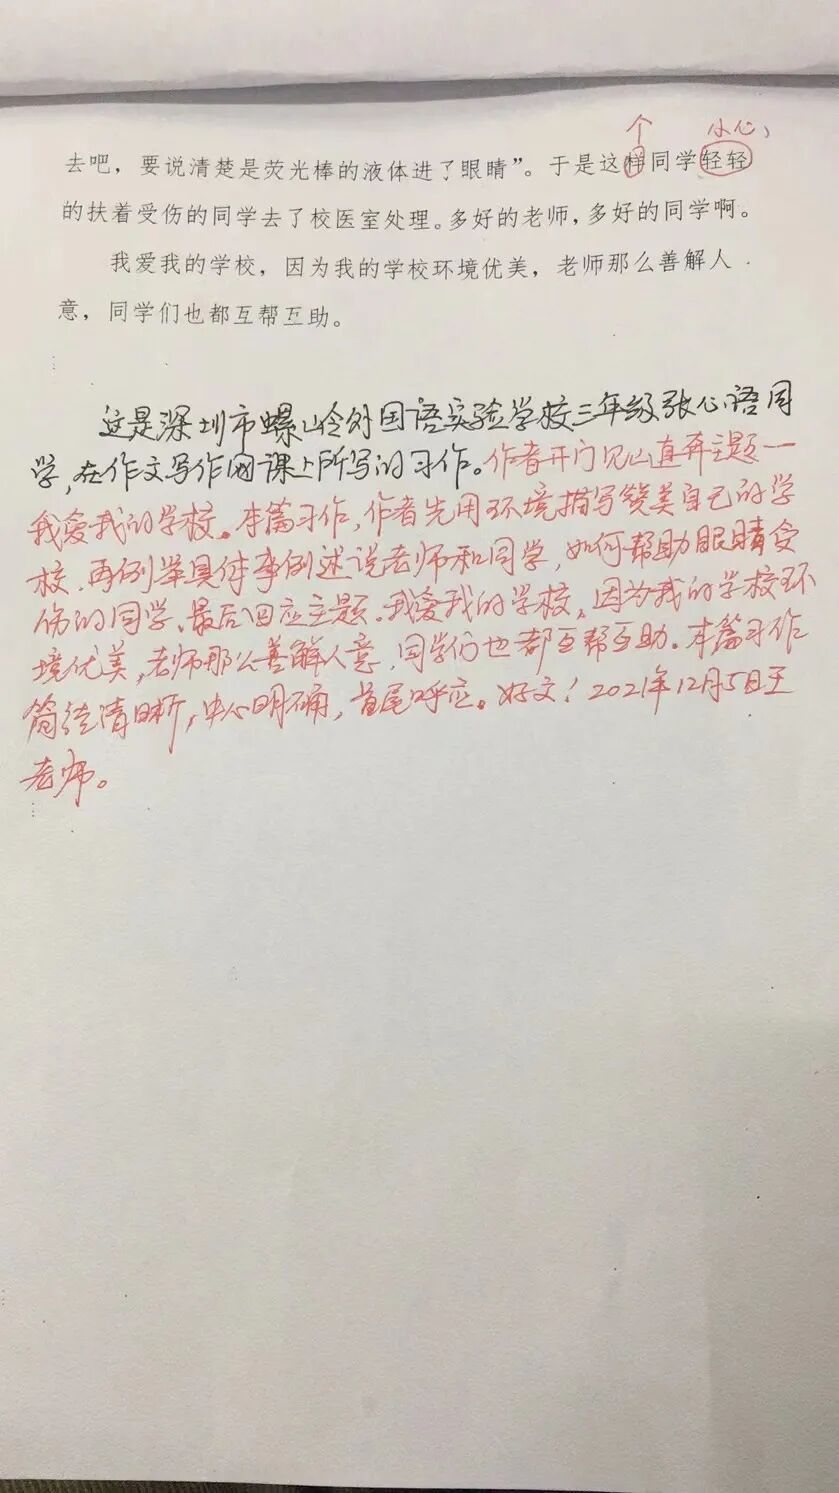 个 小心、
去吧，要说清楚是荧光棒的液体进了眼睛”。于是这样同学轻轻
的扶着受伤的同学去了校医室处理。多好的老师，多好的同学啊。
我爱我的学校，因为我的学校环境优美，老师那么善解人
意，同学们也都互帮互助。
这是深圳市螺岭外国语实验学校三年级张心语同
学，在作文写作网课上所写的习作。作者开门见山直奔主题一
我爱我的学校。本篇习作，作者先用环境描写赞美自己的学
校、再例举具体事例述说老师和同学，如何帮助眼睛受
伤的同学、最后回应主题。我爱我的学校，因为我的学校环
境优美，老师那么善解人意，同学们也都互帮互助。本篇习作
简洁清晰，中心明确，首尾呼应。好文！2021年12月5日王
老师。